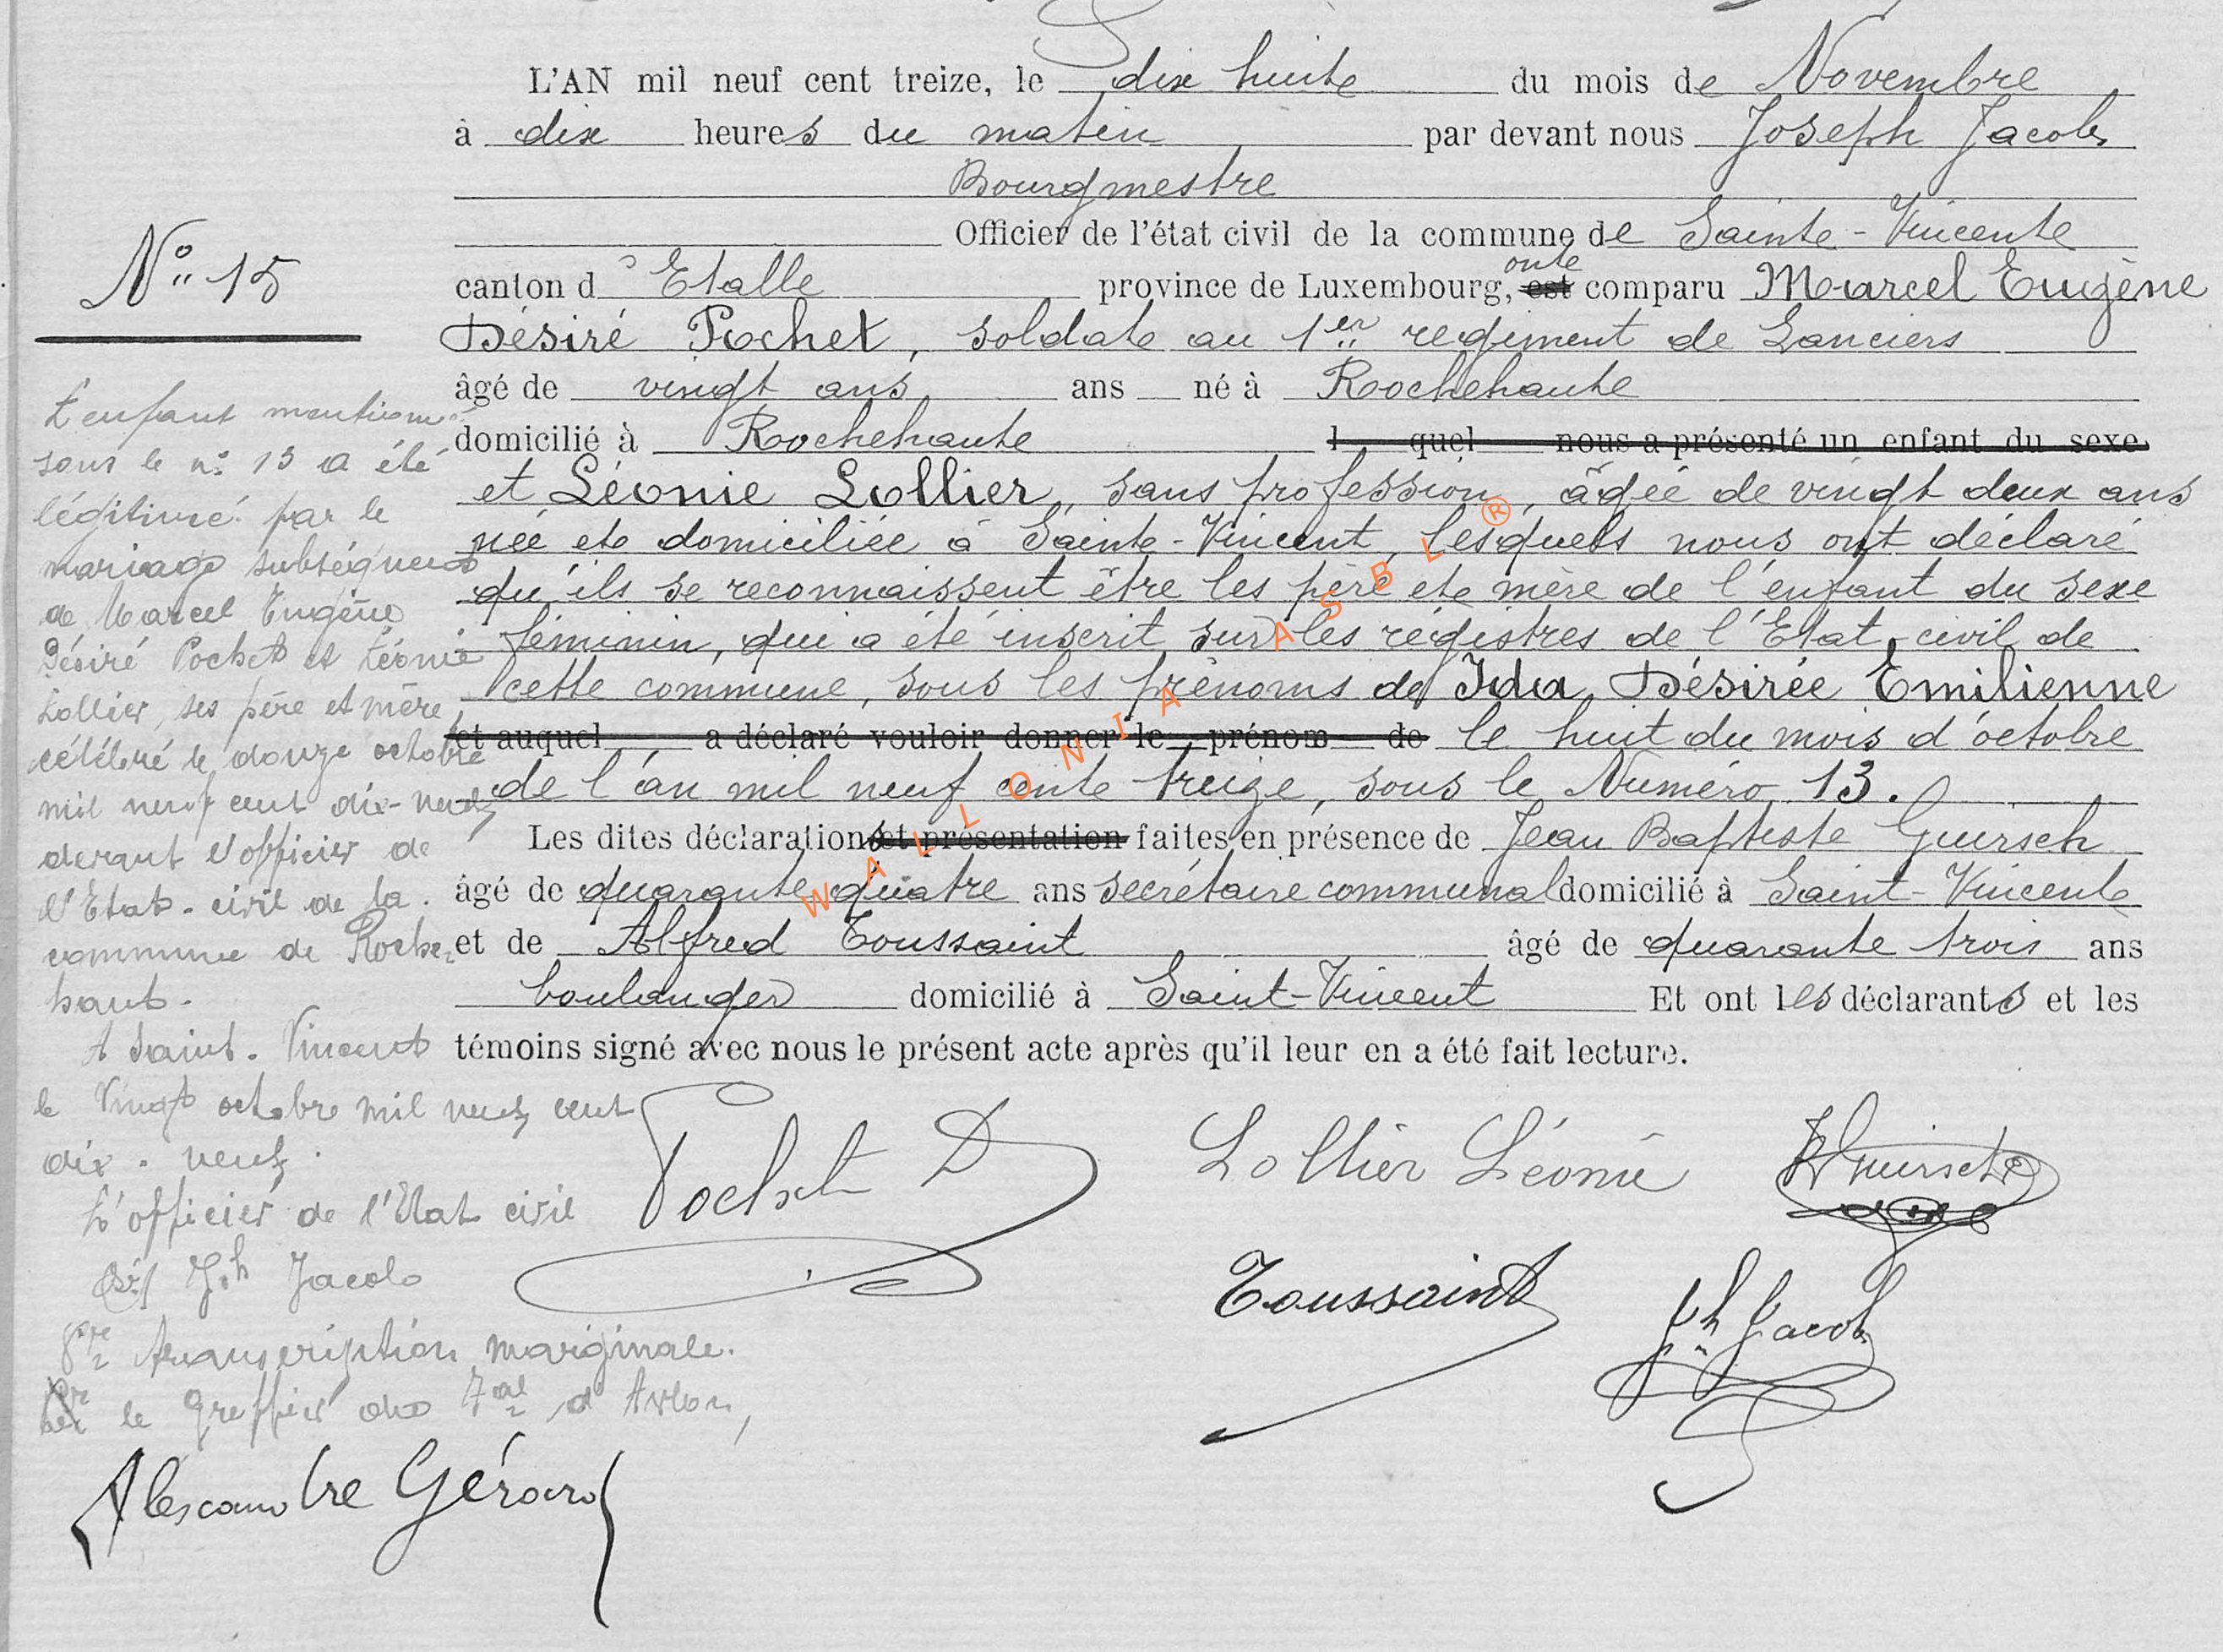 L'AN mil neuf cent treize, le dix huit du mois de Novembre
à dix heures du matin par devant nous Joseph Jacob
Bourgmestre
Officier de l'état civil de la commune de Sainte-Vincent
canton d'Etalle province de Luxembourg, ont est comparu Marcel Eugène
Désiré Pochet, soldat au 1er regiment de Lanciers
âgé de vingt ans ans né à Rochehaut
domicilié à Rochehaut l quel nous a présenté un enfant du sexe
et Léonie Lollier, sans profession, âgée de vingt deux ans
née et domiciliée à Sainte-Vincent, lesquels nous ont déclaré
qu'ils se reconnaissent être les père et mère de l'enfant du sexe
féminin, qui a été inscrit sur les régistres de l'Etat-civil de
cette commune, sous les prénoms de Ida, Désirée Emilienne
et auquel a déclaré vouloir donner le prénom de le huit du mois d'octobre
de l'an mil neuf cent treize, sous le Numéro 13.
Les dites déclarations et présentation faites en présence de Jean Baptiste Guirsch
âgé de quarante quatre ans secrétaire communal domicilié à Saint-Vincent
et de Alfred Toussaint âgé de quarante trois ans
boulanger domicilié à Saint-Vincent Et ont les déclarants et les
témoins signé avec nous le présent acte après qu'il leur en a été fait lecture.
Pochet D Lollier Léonie Guirsch
Toussaint Jh Jacob
No 15
L'enfant mentionné
sous le no 13 a été
légitimé par le
mariage subséquent
de Marcel Eugène
Désiré Pochet et Léonie
Lollier, ses père et mère,
célébré le douze octobre
mil neuf cent dix-neuf
devant l'officier de
l'Etat-civil de la
commune de Roche-
haut.
A Saint-Vincent
le Vingt octobre mil neuf cent
dix-neuf.
L'officier de l'Etat civil
(sé) Jh Jacob
pre transcription marginale.
le greffier du Tal d'Arlon,
Alexandre Gérard
WALLONIA ASBL ®